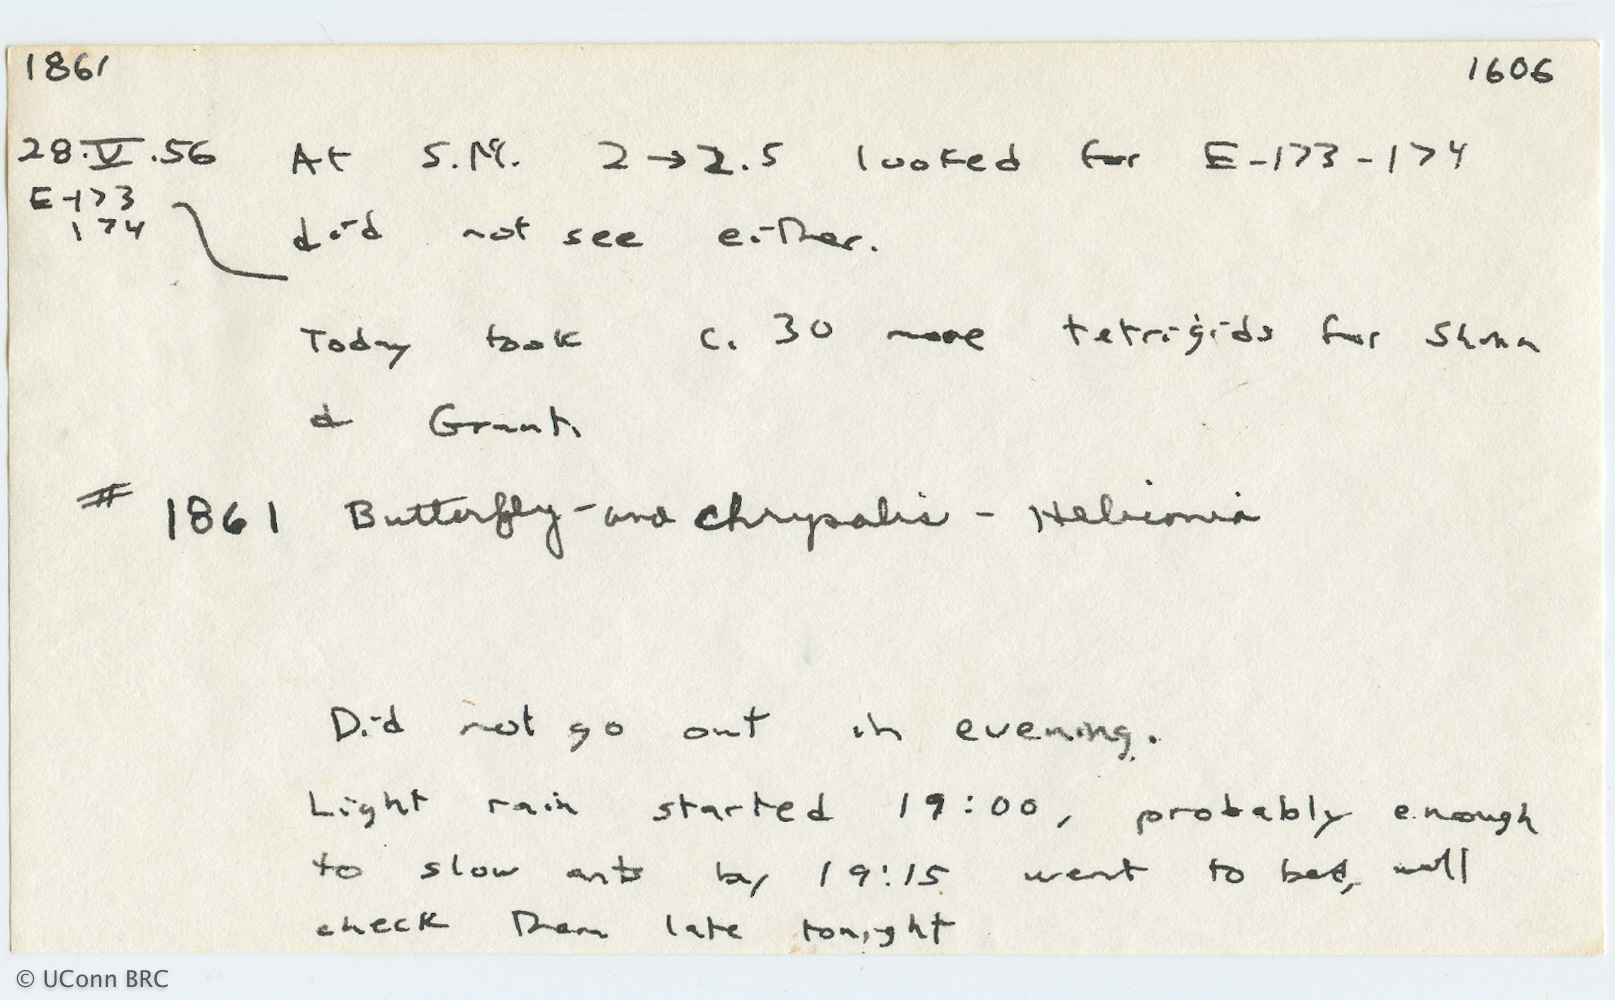 1861 1606
28.V.56 At S.M. 2→2.5 looked for E-173-174
E-173
174 did not see either.
Today took c. 30 more tetrigids for
& Grant
# 1861 Butterfly - and chrysalis - Heliconia
Did not go out in evening.
Light rain started 19:00, probably enough
to slow ants by 19:15 went to bed, will
check them late tonight
© UConn BRC